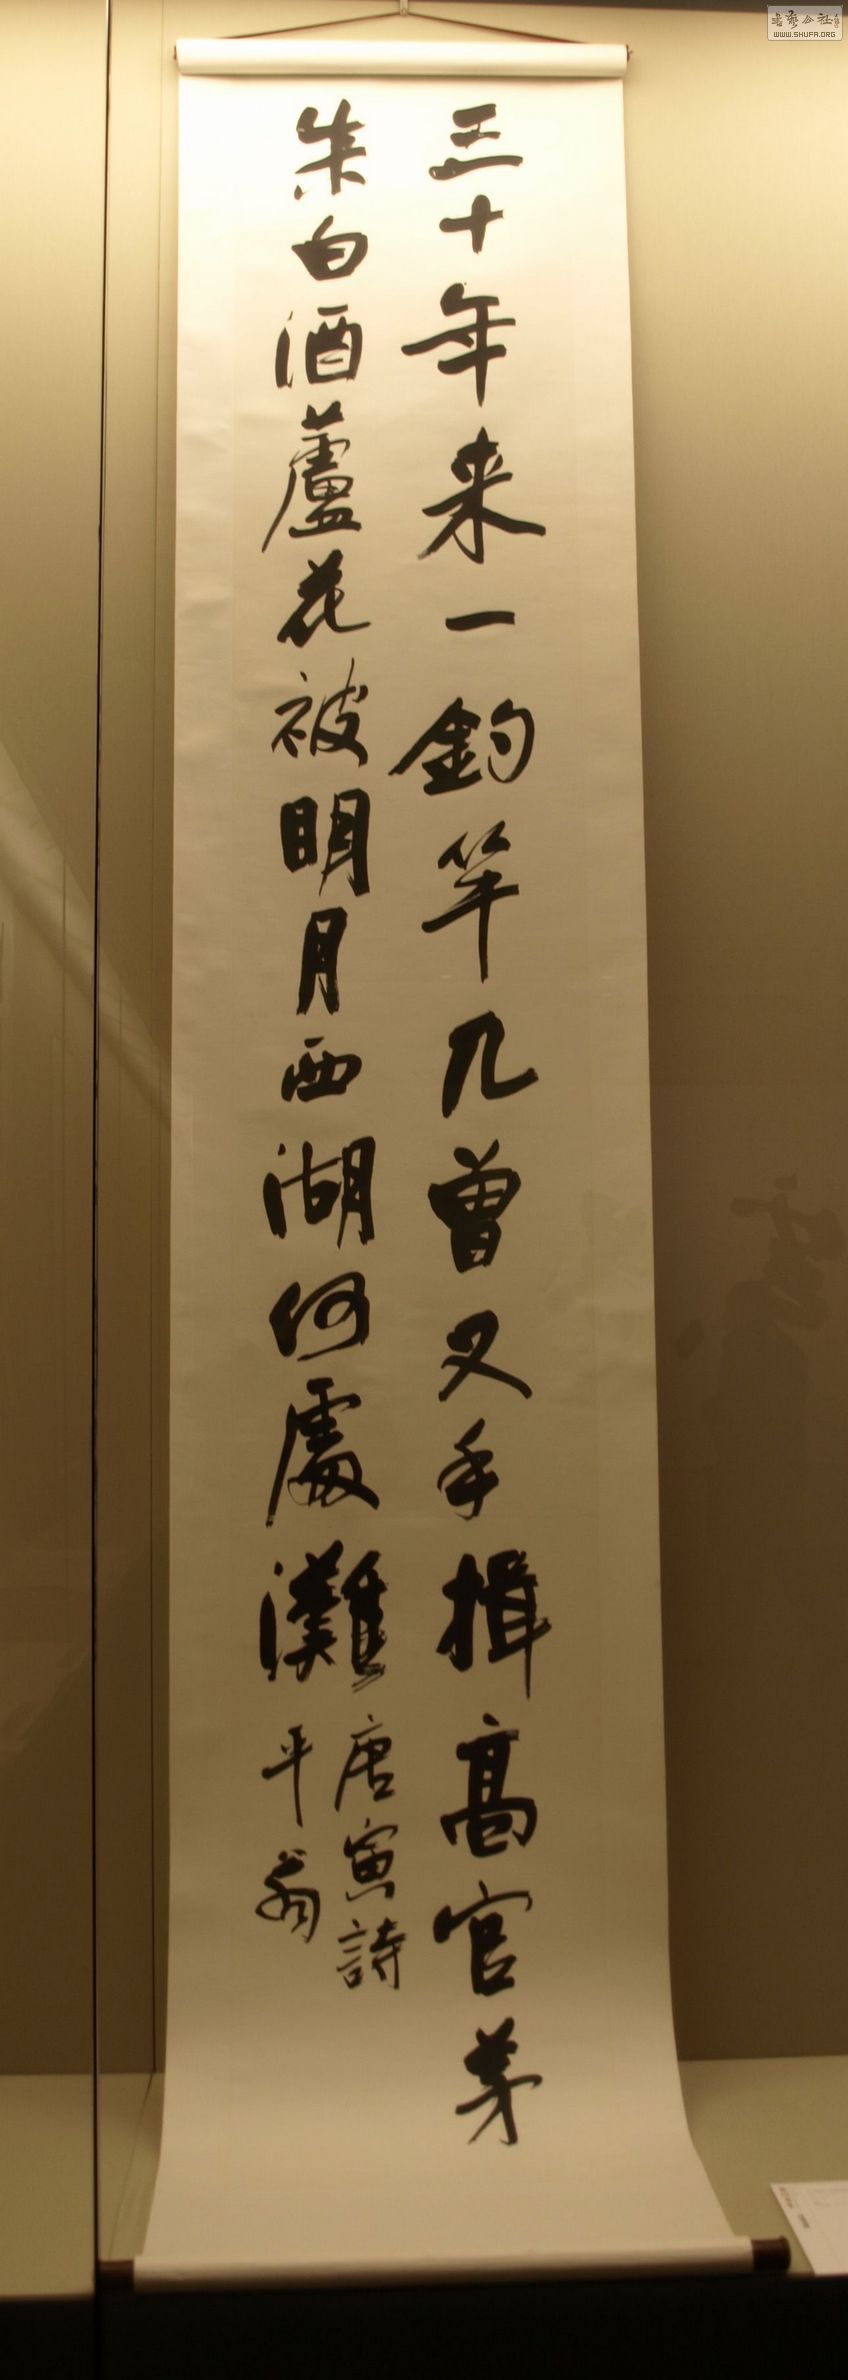 三十年来一釣竿几曾叉手揖高官茅
朱白酒蘆花被明月西湖何處灘
唐寅詩
平翁
書藝公社
WWW.SHUFA.ORG